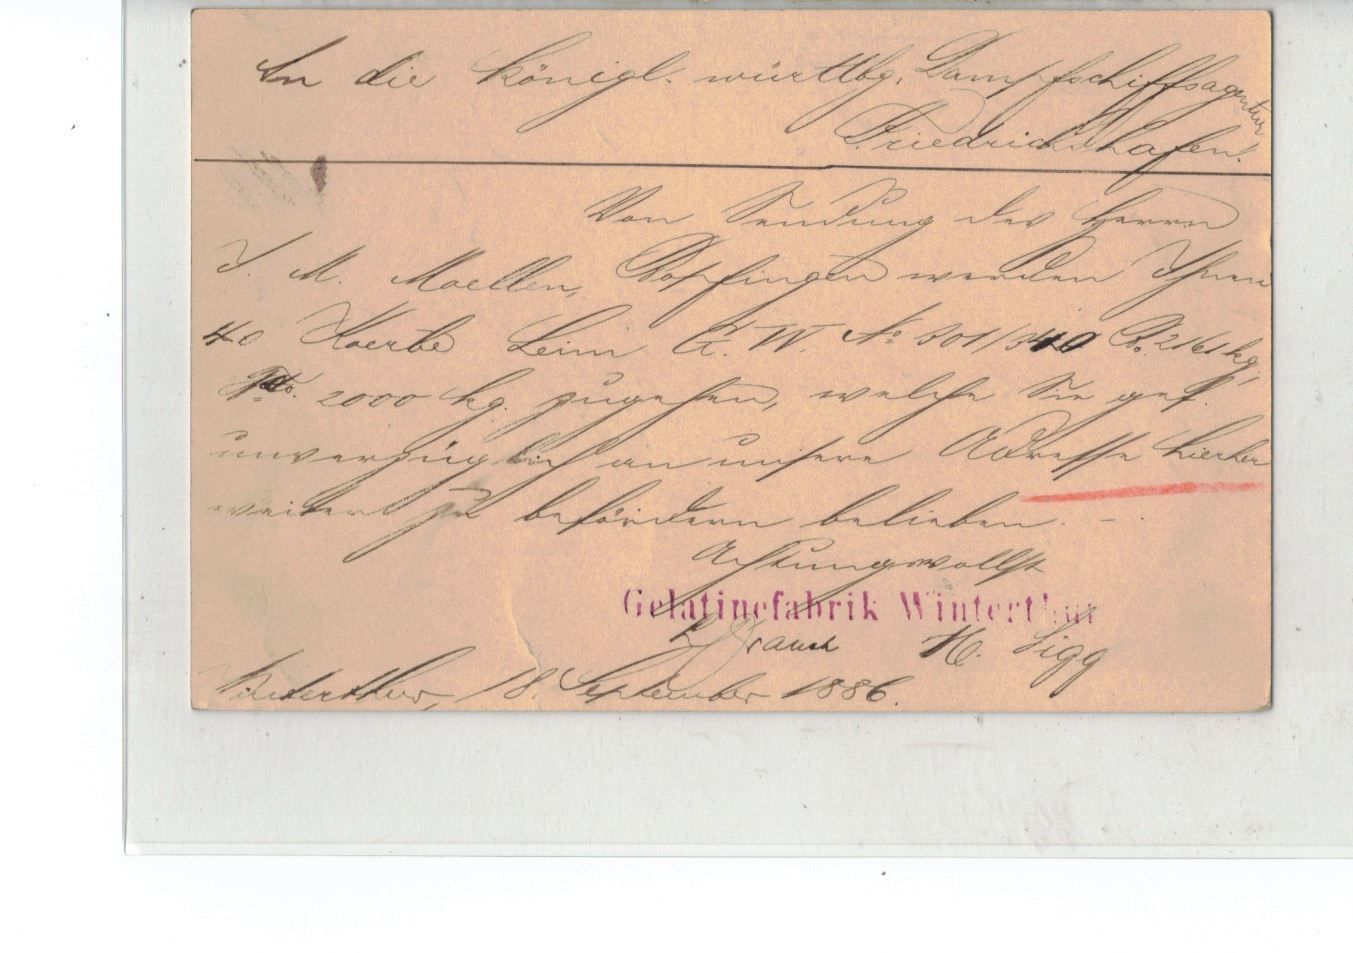 An die Königl. württbg. Dampfschiffsagentur
Friedrichshafen.
Von Sendung des Herrn
J. M. Moellen, Bopfingen werden Ihnen
40 Koerbe Leim G. W. No 301/340 Bo. 2161 kg,
2000 kg. zugehen, welche Sie gef.
unverzüglich an unsere Adresse hierher
weiter zu befördern belieben. –
Achtungsvollst
Gelatinefabrik Winterthur
H. Sigg
Winterthur, 18. September 1886.